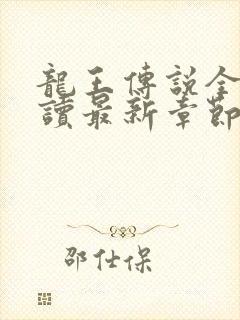 龍王傳說全
讀最新章節
邵仕保